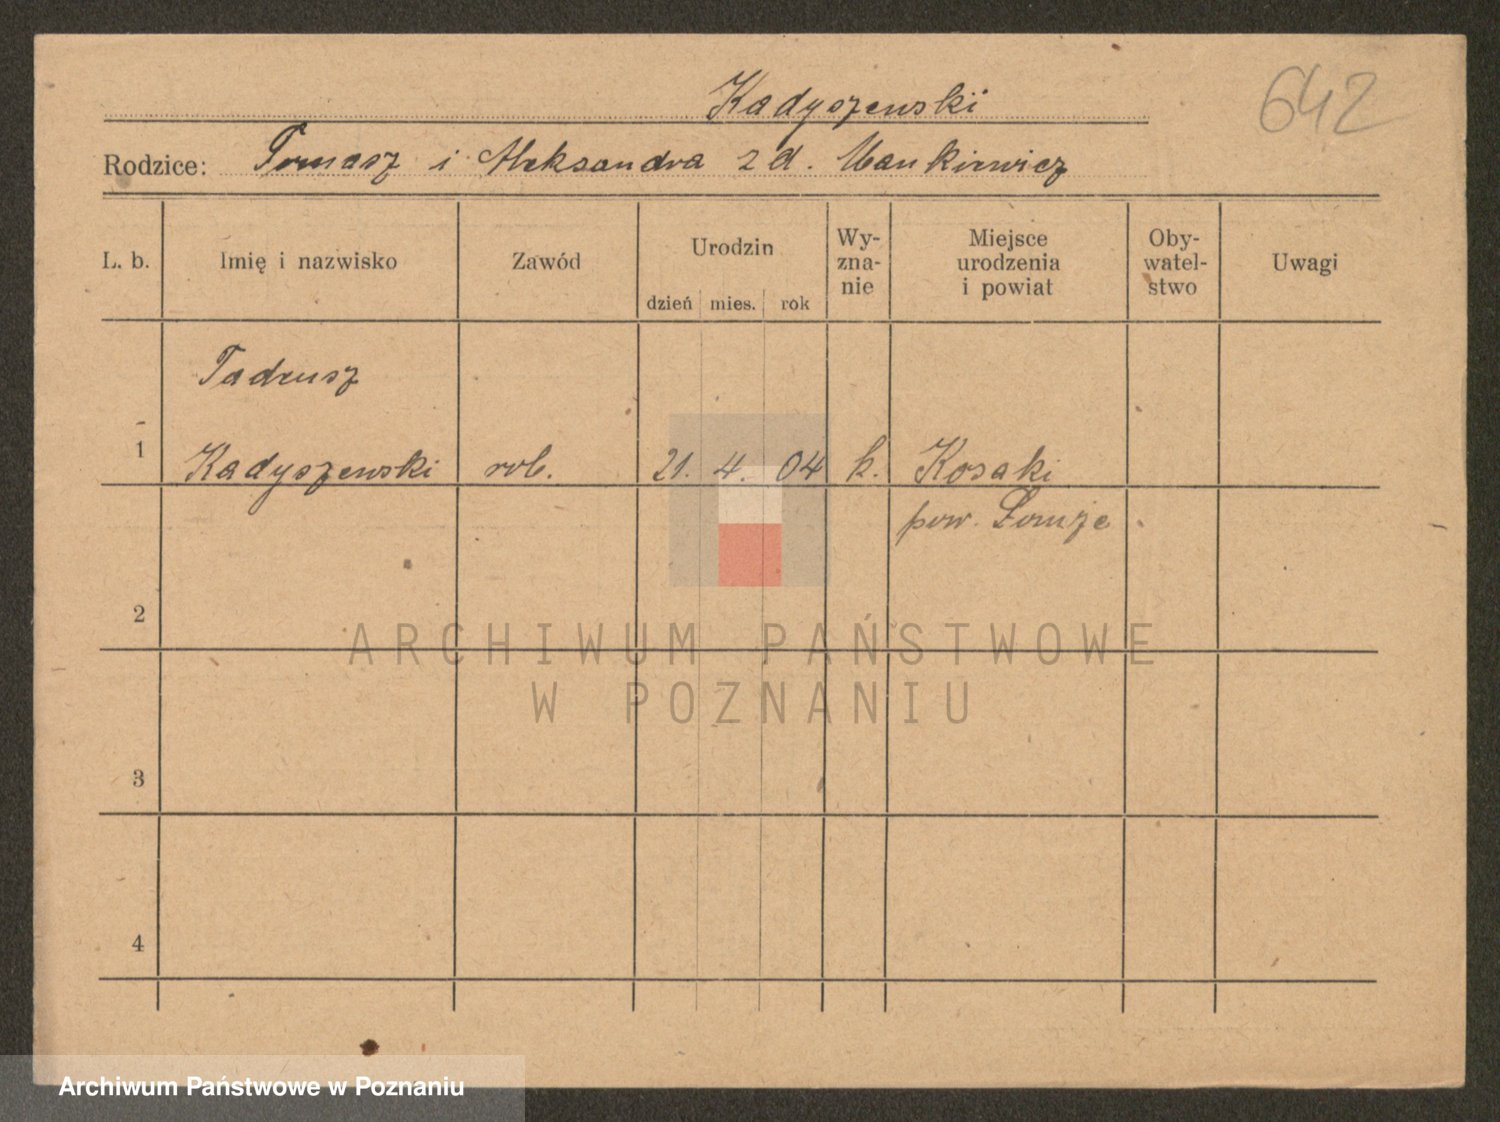 642
Kadyszewski
Rodzice: Tomasz i Aleksandra z d. Mankiewicz
L. b. Imię i nazwisko Zawód Urodzin dzień mies. rok Wy-zna-nie Miejsce urodzenia i powiat Oby-watel-stwo Uwagi
Tadeusz
1 Kadyszewski rob. 21. 4. 04 k. Kosaki
pow. Łomże
2
ARCHIWUM PAŃSTWOWE
W POZNANIU
3
4
Archiwum Państwowe w Poznaniu